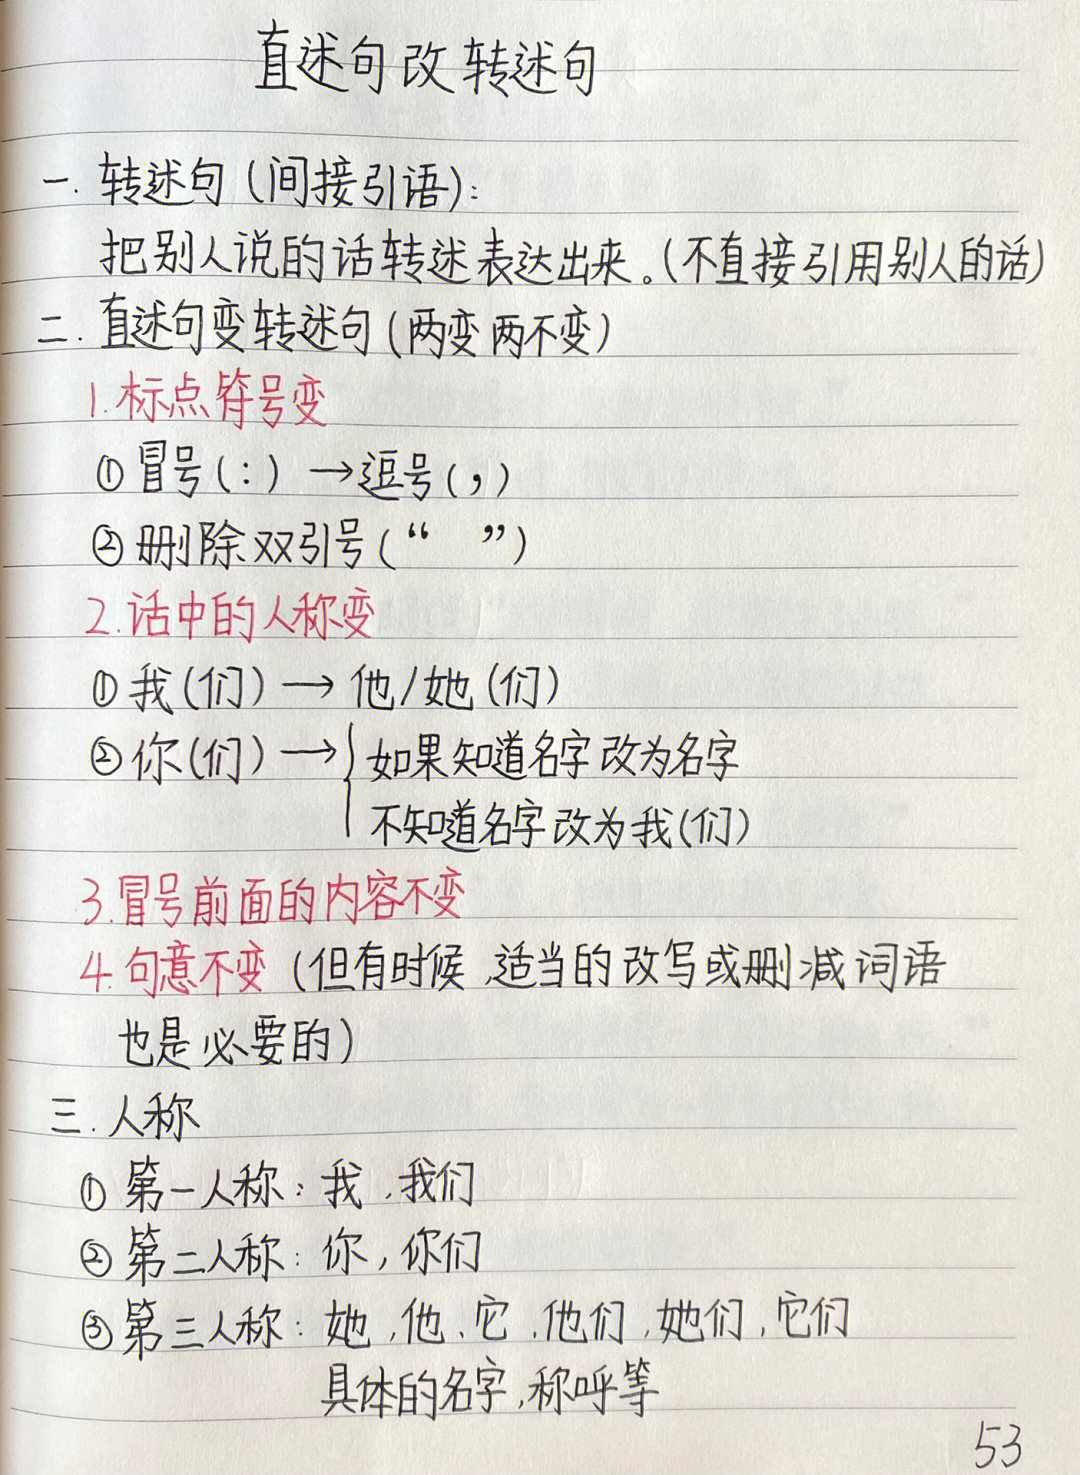 直述句改转述句
一. 转述句(间接引语):
把别人说的话转述表达出来。(不直接引用别人的话)
二. 直述句变转述句(两变两不变)
1.标点符号变
①冒号(:) →逗号(,)
②删除双引号(“ ”)
2.话中的人称变
①我(们) → 他/她(们)
②你(们) → { 如果知道名字改为名字
不知道名字改为我(们)
3.冒号前面的内容不变
4.句意不变 (但有时候,适当的改写或删减词语
也是必要的)
三. 人称
①第一人称:我,我们
②第二人称:你,你们
③第三人称:她,他、它,他们,她们,它们
具体的名字,称呼等
53